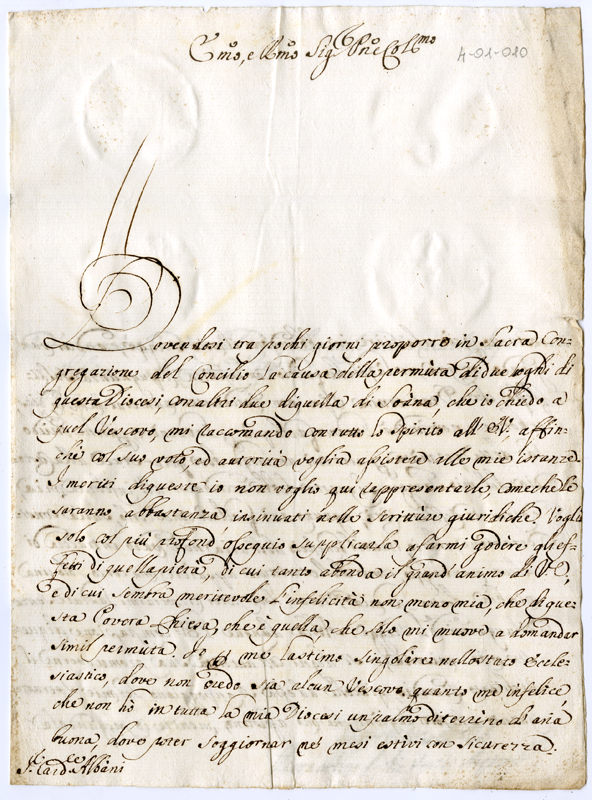 Emo, e Rmo Sig.r Pne Colmo
4-01-010
Dovendosi tra pochi giorni proporre in Sacra Con-
gregazione del Concilio la causa della permùta di due loghi di
questa Diocesi, con altri due di quella di Soàna, che io chiedo a
quel Vescovo, mi raccomando con tutto lo spirito all' E.V. affin-
chè col suo voto, ed autorità voglia assistere alle mie istanze.
I meriti di queste io non voglio qui rappresentarle, comeche le
saranno abbastanza insinuati nelle scrittùre giuridiche. Voglio
solo col più profondo ossequio supplicarla a farmi godère gli ef-
fetti di quella pietà, di cui tanto abonda il grand' animo di V.E,
e di cui sembra meritevole l'infelicità non meno mia, che di que-
sta Povera Chiesa, che è quella, che solo mi muove a domandar
simil permùta. Io me lastimo singolare nello stato Eccle-
siastico, dove non credo sia alcun Vescovo quanto me infelice,
che non hò in tutta la mia Diocesi un palmo di terrèno di aria
buona, dove poter soggiornar ne' mesi estivi con sicurezza.
Card.e Albàni